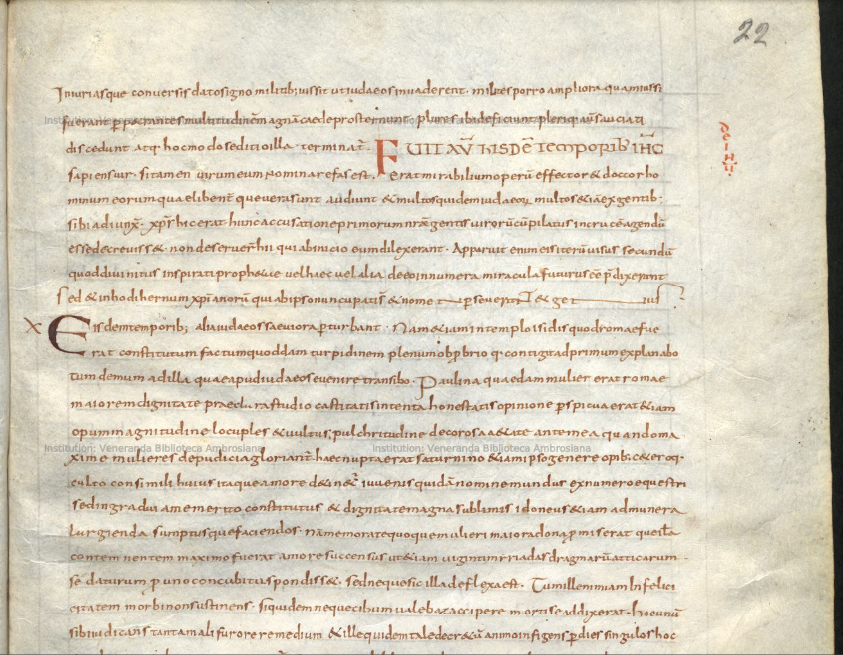 22
Iniuriasque conversis dato signo militib; iussit ut iudaeos invaderent · milites porro ampliora quam iussi
fuerant p̱ pacrantes multitudinem magna caede prosternunt · plures ibi deficiunt pleriq; aū sauciati
discedunt atq; hoc modo seditio illa terminat̄ · FUIT AŪ HISDĒ Temporib; IHC
deihū
sapiens vir · sitamen virum eum nominare fas est · erat mirabilium operū effector & doctor ho
minum eorum qua elibent̄ que vera sunt audiunt & multos quidem iudaeoꝝ multos &iā ex gentib·
sibi adiunx̄ · xp̄s hic erat hunc accusatione primorum nr̄ae gentis virorū cū pilatus incruce agendū
esse decreviss& · non deseruer̄ hii qui abinicio eum dilexerant · Apparuit enim eis iterū vivus secundū
quod divinitus inspirati proph&ae vel haec vel alia de eo innumera miracula futura eē p̄dixerant
Sed & in hodiernum xp̄ianorū qui abipso nuncupatiꝫ & nom̄e perseverat & ge
x Eisdem temporib; alia iudaeos saeviora pturbant · Nam & iam in templo isidis quod romae fue
rat constitutum factum quoddam turpidinem plenum obp̱brio q; contigit ad primum explanabo
tum demum ad illa quae apud iudaeos evenire transibo · Paulina quaedam mulier erat romae
maiorem dignitate praeclara studio castitatis intenta honestatis opinione p̱spicua erat &iam
opum magnitudine locuples & vultus pulchritudine decorosa a&ate ante mea quando ma
Institution: Veneranda Biblioteca Ambrosiana
Institution: Veneranda Biblioteca Ambrosiana
xime mulieres de pudicia gloriant̄ haec nupta erat saturnino &iam ipso genere opib; c&eroq·
culto consimili huius itaque amore d&in&̄ iuvenis quidā nomine mundus ex numero equestri
sed in gradu a me merito constitutus & dignitate magna sublimis idoneus &iam ad munera
lurgienda sumptusque faciendos · nā memorate quoque mulieri maiora dona p̱miserat que illa
contemnentem maximo fuerat amore succensus ut &iam viginti mirriadas dragmarū atticarum
se daturum p̱ uno concubitu spondiss& · sed neque sic illa deflexa est · Tum ille nimiam Infelici
citatem morbi non sustinens · siquidem neque cibum valebat accipere mortise addixerat · hic unū
sibi iudicans tanta mali furore remedium & ille quidem tale decr&ū animo infigens p̱ dies singulos hoc